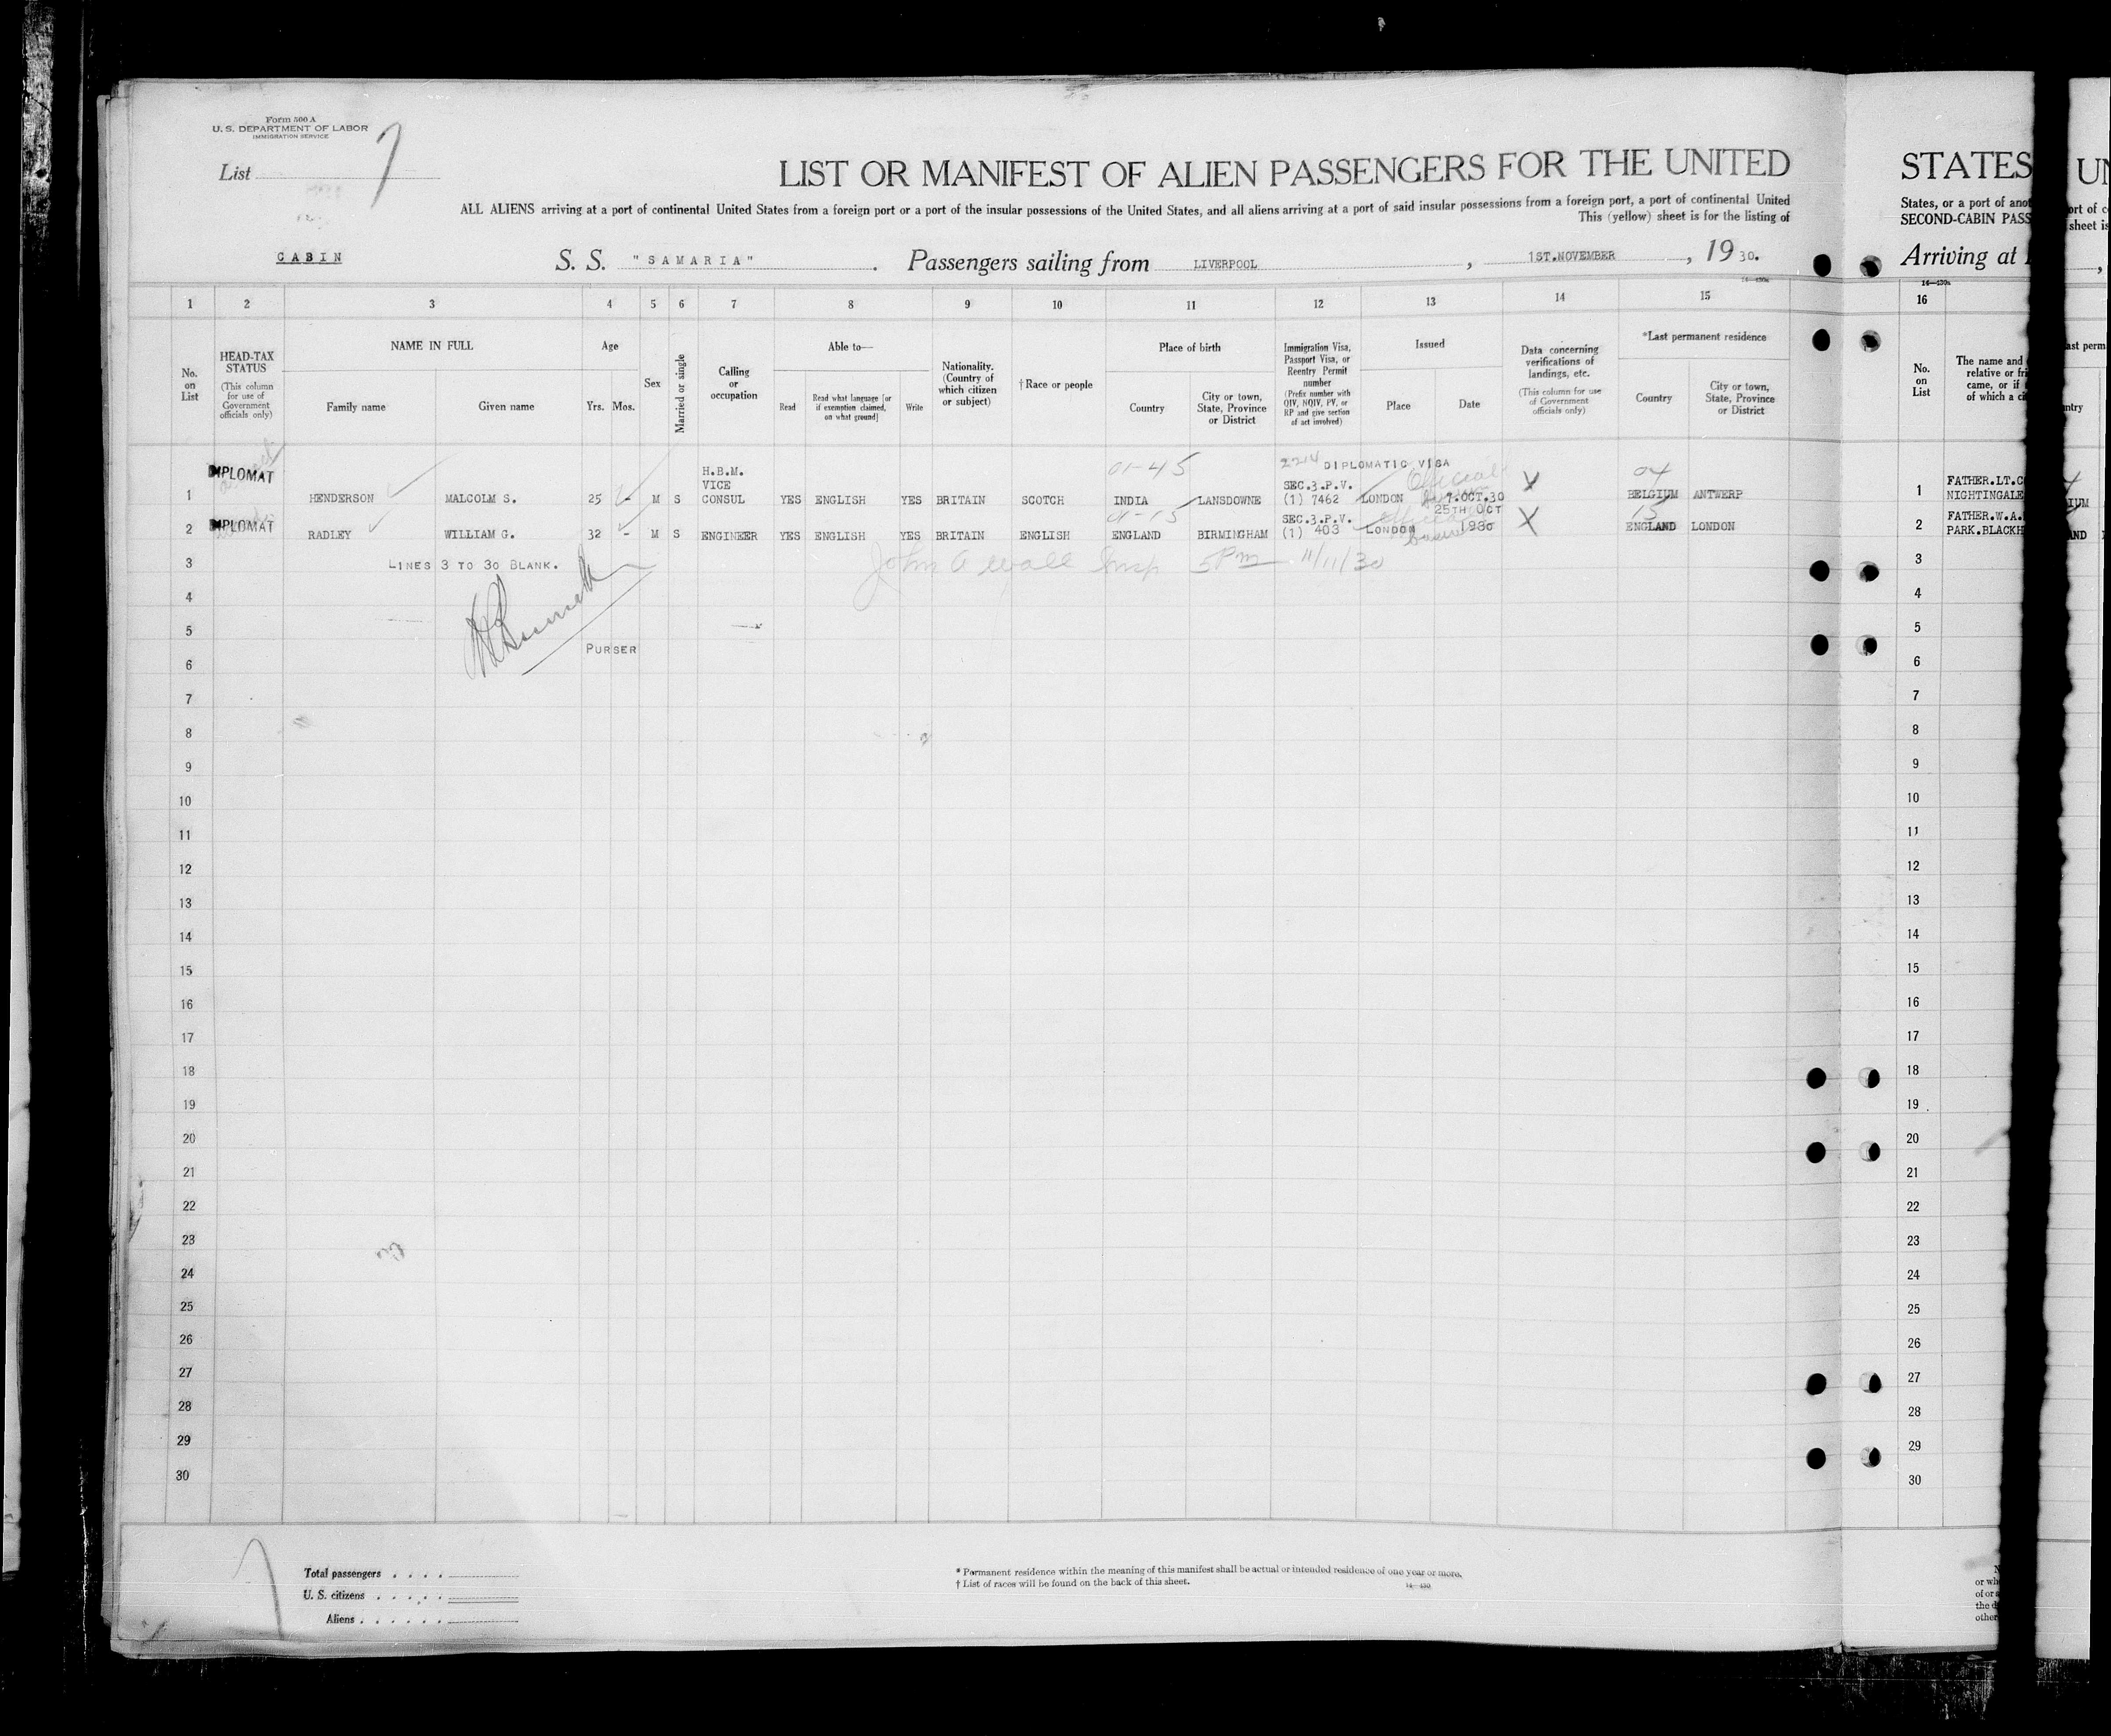 Form 500 A
U. S. DEPARTMENT OF LABOR
IMMIGRATION SERVICE
List 7
LIST OR MANIFEST OF ALIEN PASSENGERS FOR THE UNITED
ALL ALIENS arriving at a port of continental United States from a foreign port or a port of the insular possessions of the United States, and all aliens arriving at a port of said insular possessions from a foreign port, a port of continental United
This (yellow) sheet is for the listing of
CABIN S. S. "SAMARIA" . Passengers sailing from LIVERPOOL , 1ST.NOVEMBER , 19 30.
1 2 3 4 5 6 7 8 9 10 11 12 13 14 15
No. on List
HEAD-TAX STATUS (This column for use of Government officials only)
NAME IN FULL
Family name Given name
Age
Yrs. Mos.
Sex
Married or single
Calling or occupation
Able to—
Read Read what language [or if exemption claimed, on what ground] Write
Nationality. (Country of which citizen or subject)
†Race or people
Place of birth
Country City or town, State, Province or District
Immigration Visa, Passport Visa, or Reentry Permit number (Prefix number with QIV, NQIV, PV, or RP and give section of act involved)
Issued
Place Date
Data concerning verifications of landings, etc. (This column for use of Government officials only)
*Last permanent residence
Country City or town, State, Province or District
DIPLOMAT H.B.M. 01-45 2214 DIPLOMATIC VISA 04
VICE SEC.3.P.V. Official
1 HENDERSON MALCOLM S. 25 - M S CONSUL YES ENGLISH YES BRITAIN SCOTCH INDIA LANSDOWNE (1) 7462 LONDON 7.OCT.30 BELGIUM ANTWERP
DIPLOMAT SEC.3.P.V. 25TH OCT
2 RADLEY WILLIAM G. 32 - M S ENGINEER YES ENGLISH YES BRITAIN ENGLISH ENGLAND BIRMINGHAM (1) 403 LONDON 1930 ENGLAND LONDON
3 LINES 3 TO 30 BLANK. John A Wall Insp 5 Pm 11/11/30
4
5
PURSER
6
7
8
9
10
11
12
13
14
15
16
17
18
19
20
21
22
23
24
25
26
27
28
29
30
Total passengers . . . .
U. S. citizens . . . . .
Aliens . . . . . .
* Permanent residence within the meaning of this manifest shall be actual or intended residence of one year or more.
† List of races will be found on the back of this sheet.
STATES
States, or a port of
SECOND-CABIN
Arriving at
16
No. on List
The name and
relative or
came, or if
of which a
1 FATHER.LT.
NIGHTINGALE
2 FATHER.W.A.
PARK.
3
4
5
6
7
8
9
10
11
12
13
14
15
16
17
18
19
20
21
22
23
24
25
26
27
28
29
30